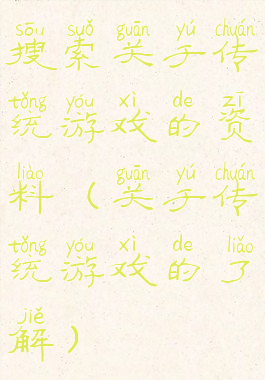 sōu suǒ guān yú chuán
搜索关于传
tǒng yóu xì de zī
统游戏的资
liào guān yú chuán
料（关于传
tǒng yóu xì de liǎo
统游戏的了
jiě
解）